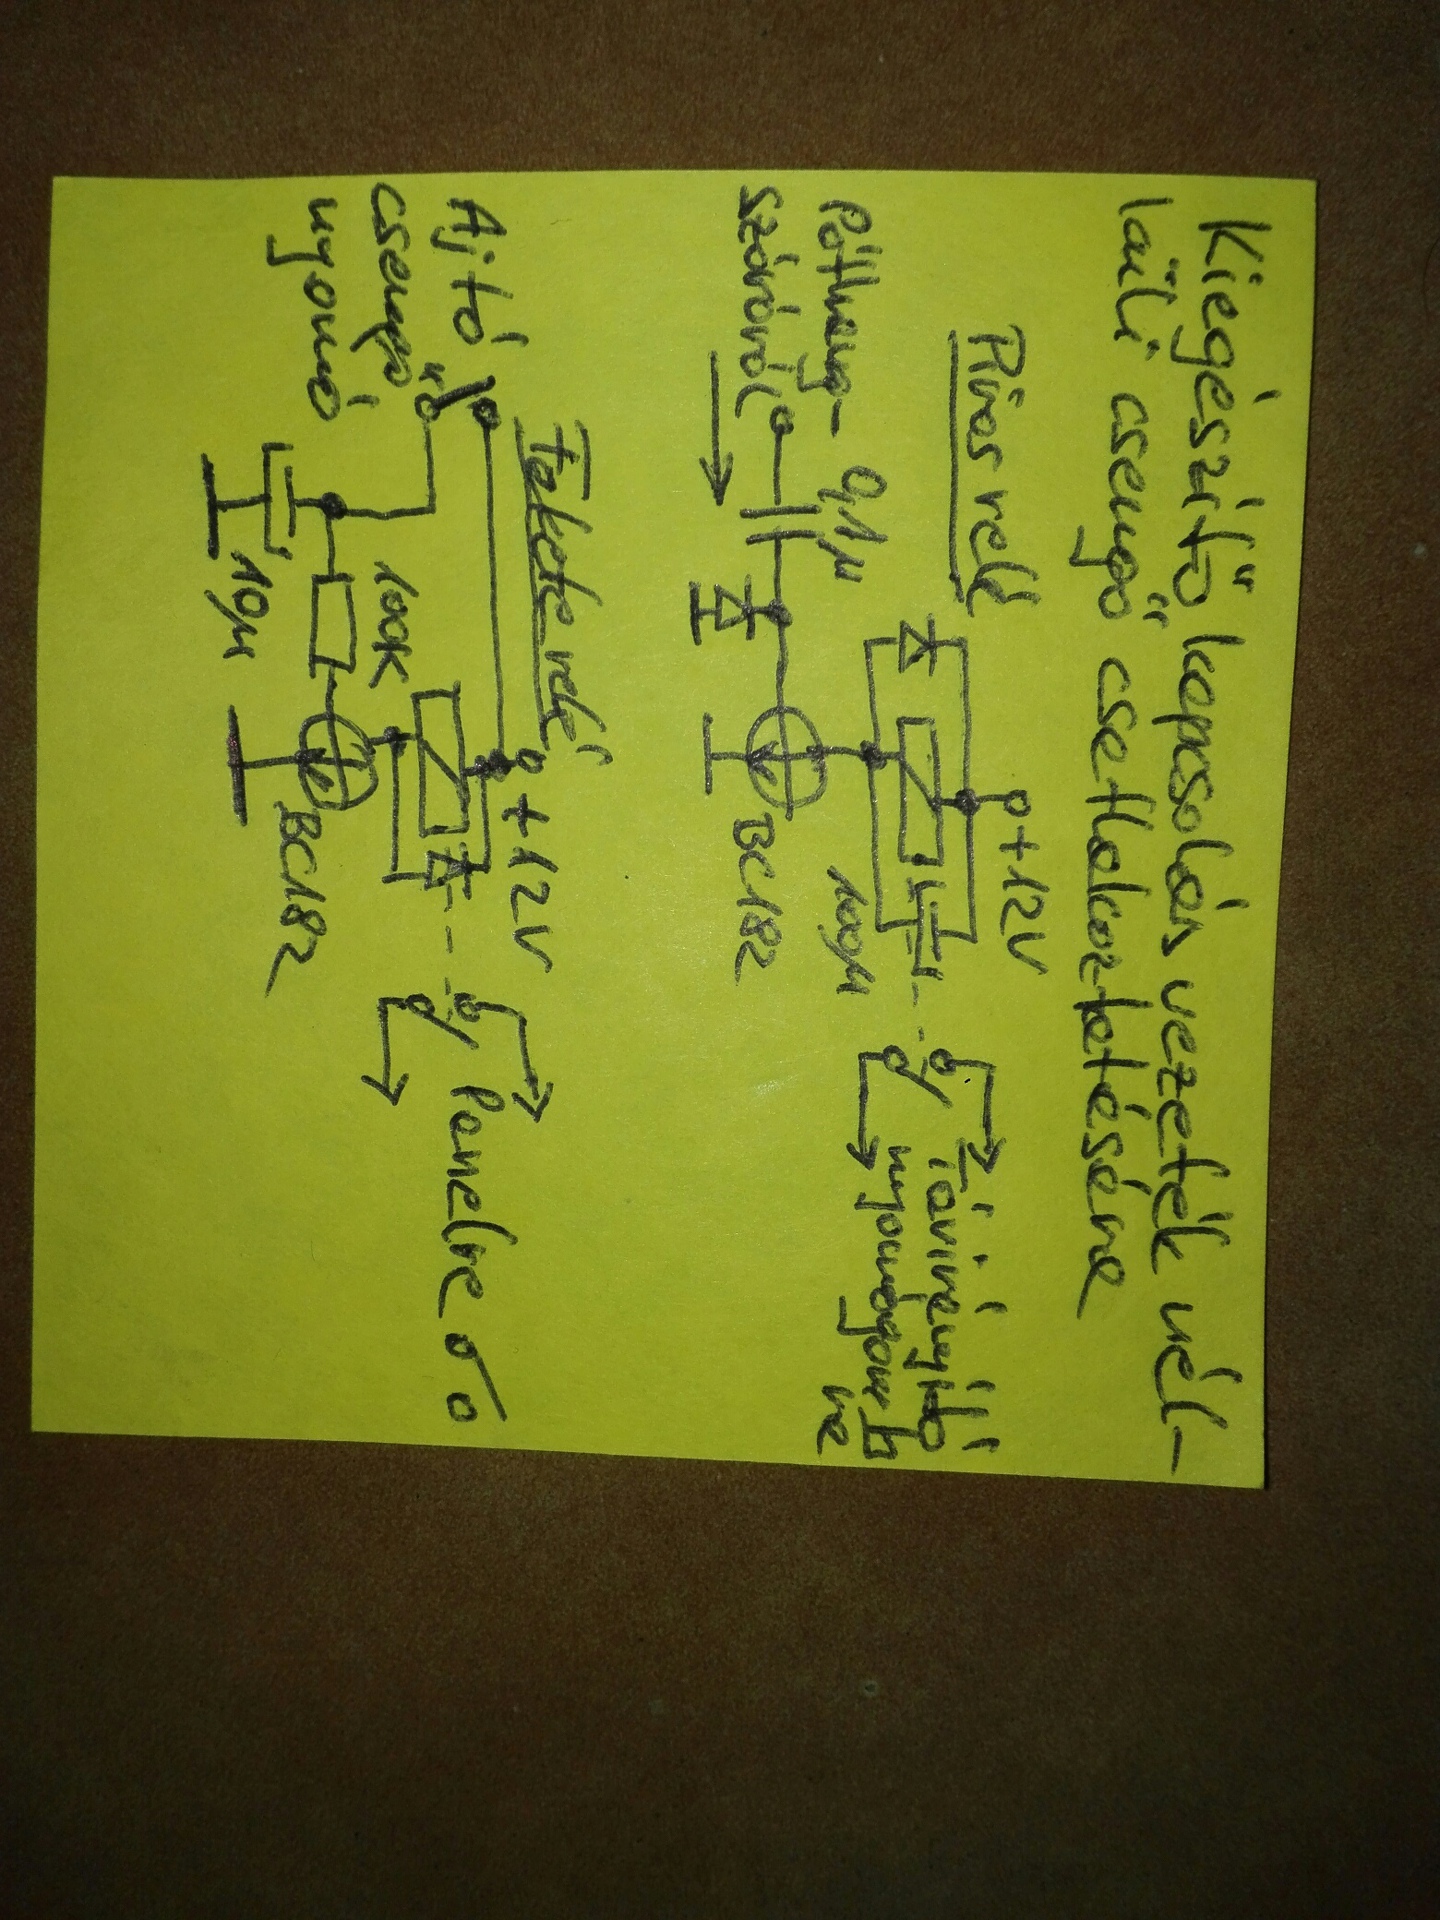 Kiegészítő kapcsolás vezeték nél-
küli csengő csatlakoztatására
Piros relé
+12V
0,1µ
Póthang-
szóróról
100µ
BC182
Távirányító
nyomógomb
ra
Fekete relé
+12V
Ajtó
csengő
nyomó
100K
10µ
BC182
Panelre